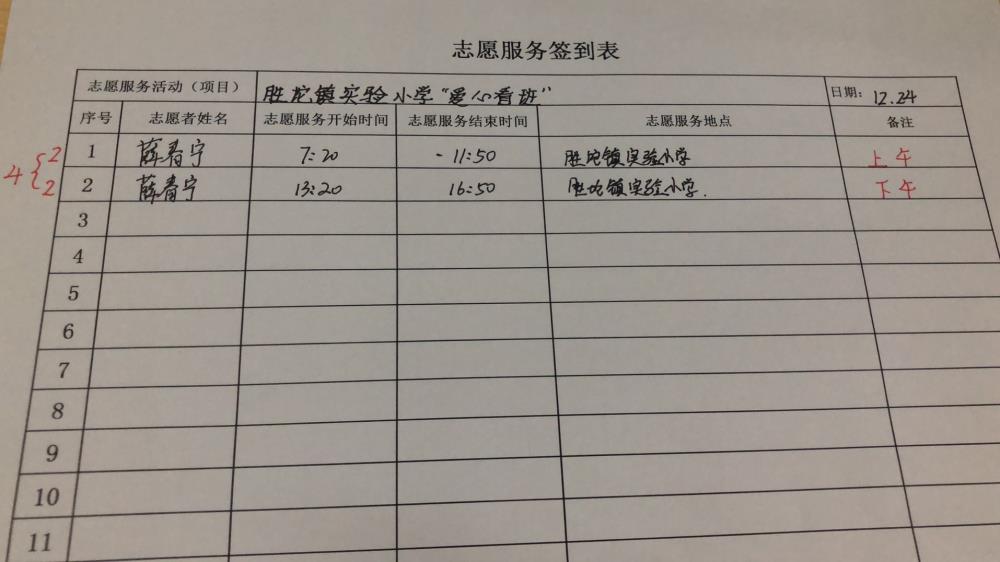 志愿服务签到表
志愿服务活动（项目） 胜坨镇实验小学"爱心看班" 日期： 12.24
序号 志愿者姓名 志愿服务开始时间 志愿服务结束时间 志愿服务地点 备注
4 { 2 1 薛春宁 7:20 - 11:50 胜坨镇实验小学 上午
2 2 薛春宁 13:20 16:50 胜坨镇实验小学. 下午
3
4
5
6
7
8
9
10
11